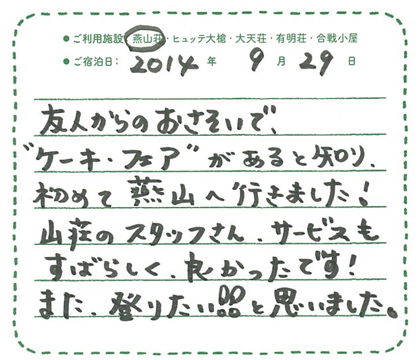 ●ご利用施設:燕山荘・ヒュッテ大槍・大天荘・有明荘・合戦小屋
●ご宿泊日: 2014 年 9 月 29 日
友人からのおさそいで、
"ケーキ・フェア"があると知り、
初めて燕山へ行きました!
山荘のスタッフさん、サービスも
すばらしく、良かったです!
また、登りたい と思いました。